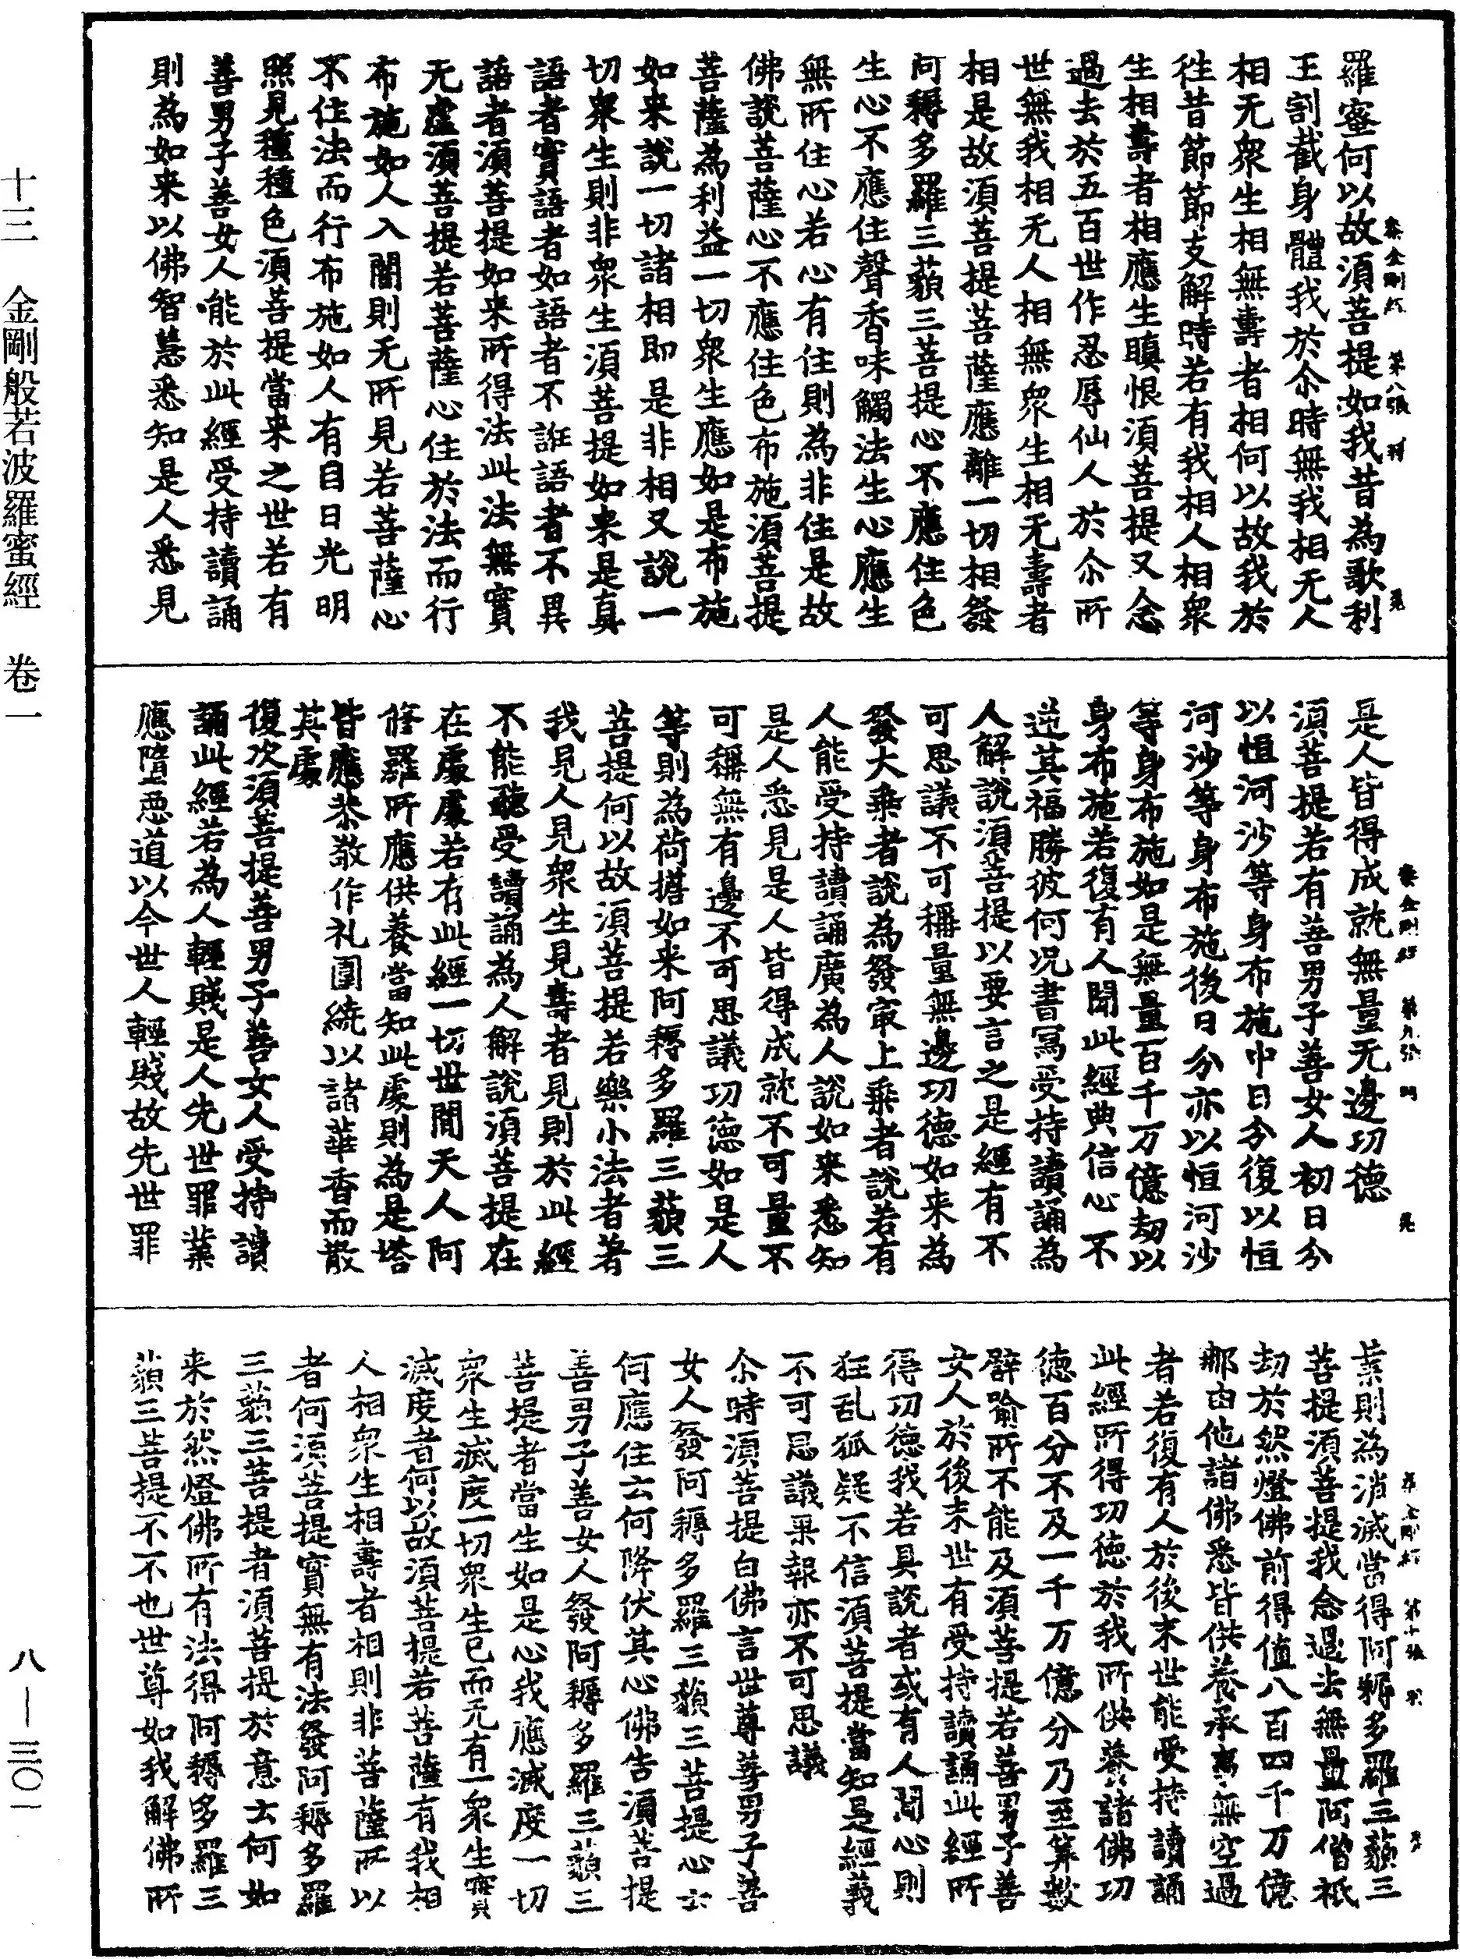 羅蜜何以故須菩提如我昔為歌利
王割截身體我於尒時無我相无人
相无衆生相無壽者相何以故我於
徃昔節節支解時若有我相人相衆
生相壽者相應生瞋恨須菩提又念
過去於五百世作忍辱仙人於尒所
世無我相无人相無衆生相无壽者
相是故須菩提菩薩應離一切相發
阿耨多羅三藐三菩提心不應住色
生心不應住聲香味觸法生心應生
無所住心若心有住則為非住是故
佛說菩薩心不應住色布施須菩提
菩薩為利益一切衆生應如是布施
如来說一切諸相即是非相又說一
切衆生則非衆生須菩提如来是真
語者實語者如語者不誑語者不異
語者須菩提如来所得法此法無實
无虛須菩提若菩薩心住於法而行
布施如人入闇則无所見若菩薩心
不住法而行布施如人有目日光明
照見種種色須菩提當来之世若有
善男子善女人能於此經受持讀誦
則為如来以佛智慧悉知是人悉見
金剛經 第八張
是人皆得成就無量无邊功德
須菩提若有善男子善女人初日分
以恒河沙等身布施中日分復以恒
河沙等身布施後日分亦以恒河沙
等身布施如是無量百千万億劫以
身布施若復有人聞此經典信心不
逆其福勝彼何况書寫受持讀誦為
人解說須菩提以要言之是經有不
可思議不可稱量無邊功德如来為
發大乗者說為發㝡上乗者說若有
人能受持讀誦廣為人說如来悉知
是人悉見是人皆得成就不可量不
可稱無有邊不可思議功德如是人
等則為荷擔如来阿耨多羅三藐三
菩提何以故須菩提若樂小法者著
我見人見衆生見壽者見則於此經
不能聽受讀誦為人解說須菩提在
在處處若有此經一切世間天人阿
修羅所應供養當知此處則為是塔
皆應恭敬作礼圍繞以諸華香而散
其處
復次須菩提善男子善女人受持讀
誦此經若為人輕賤是人先世罪業
應墮惡道以今世人輕賤故先世罪
金剛經 第九張
業則為消滅當得阿耨多羅三藐三
菩提須菩提我念過去無量阿僧祇
劫於然燈佛前得值八百四千万億
那由他諸佛悉皆供養承事無空過
者若復有人於後末世能受持讀誦
此經所得功德於我所供養諸佛功
德百分不及一千万億分乃至筭數
譬喻所不能及須菩提若善男子善
女人於後末世有受持讀誦此經所
得功德我若具說者或有人聞心則
狂乱狐疑不信須菩提當知是經義
不可思議果報亦不可思議
尒時須菩提白佛言世尊善男子善
女人發阿耨多羅三藐三菩提心云
何應住云何降伏其心佛告須菩提
善男子善女人發阿耨多羅三藐三
菩提者當生如是心我應滅度一切
衆生滅度一切衆生已而无有一衆生實
滅度者何以故須菩提若菩薩有我相
人相衆生相壽者相則非菩薩所以
者何須菩提實無有法發阿耨多羅
三藐三菩提者須菩提於意云何如
来於然燈佛所有法得阿耨多羅三
藐三菩提不不也世尊如我解佛所
金剛經 第十張
十三 金剛般若波羅蜜經 卷一
八—三〇一